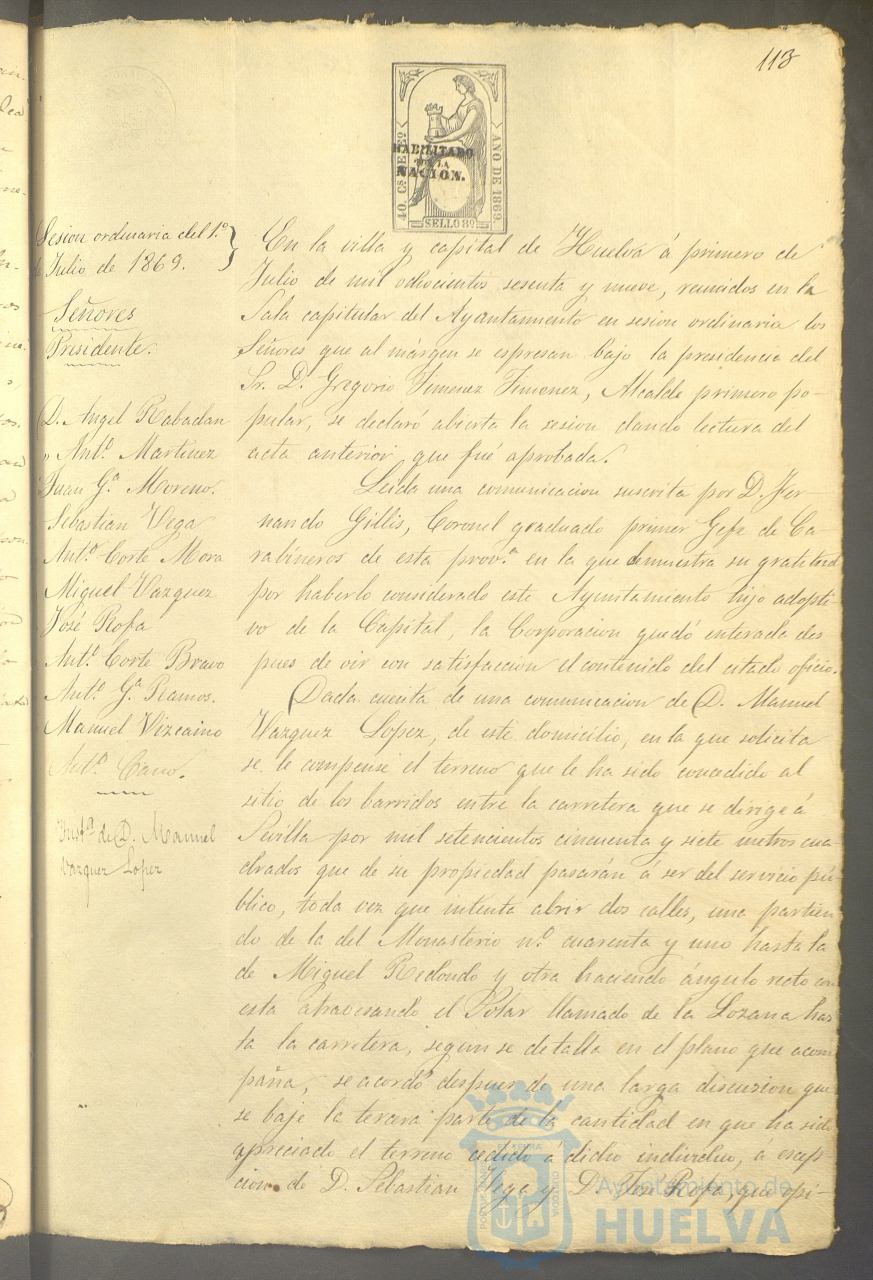 113
40. Cs DE Eo
HABILITADO
POR LA
NACION.
AÑO DE 1869
SELLO 8º
Sesion ordinaria del 1.º
de Julio de 1869.
Señores
Presidente.
D. Angel Rabadan
" Ant.º Martinez
Juan G.ª Moreno.
Sebastian Vega
Ant.º Corte Mora
Miguel Vazquez
José Rofa
Ant.º Corte Bravo
Ant.º G.ª Ramos.
Manuel Vizcaino
Ant.º Cano.
Inst.ª de D. Manuel
Vazquez Lopez
En la villa y capital de Huelva á primero de
Julio de mil ochocientos sesenta y nueve, reunidos en la
Sala capitular del Ayuntamiento en sesion ordinaria los
Señores que al márgen se espresan bajo la presidencia del
Sr. D. Gregorio Jimenez Jimenez, Alcalde primero po-
pular, se declaró abierta la sesion dando lectura del
acta anterior que fué aprobada.
Leida una comunicacion suscrita por D. Fer-
nando Gillis, Coronel graduado primer Gefe de Ca
rabineros de esta prov.ª en la que demuestra su gratitud
por haberlo considerado este Ayuntamiento hijo adopti
vo de la Capital, la Corporacion quedó enterada des
pues de oir con satisfaccion el contenido del citado oficio.
Dada cuenta de una comunicacion de D. Manuel
Vazquez Lopez, de este domicilio, en la que solicita
se le compense el terreno que le ha sido concedido al
sitio de los barridos entre la carretera que se dirige á
Sevilla por mil setecientos cincuenta y siete metros cua
drados que de su propiedad pasarán á ser del servicio pú-
blico, toda vez que intenta abrir dos calles, una partien
do de la del Monasterio n.º cuarenta y uno hasta la
de Miguel Redondo y otra haciendo ángulo recto con
esta atravesando el Solar llamado de la Lozana has
ta la carretera, segun se detalla en el plano que acom
paña, se acordó despues de una larga discusion que
se baje la tercera parte de la cantidad en que ha sido
apreciado el terreno cedido á dicho individuo, á escep
cion de D. Sebastian Vega y D. José Rofa, que opi-
Ayuntamiento de
HUELVA